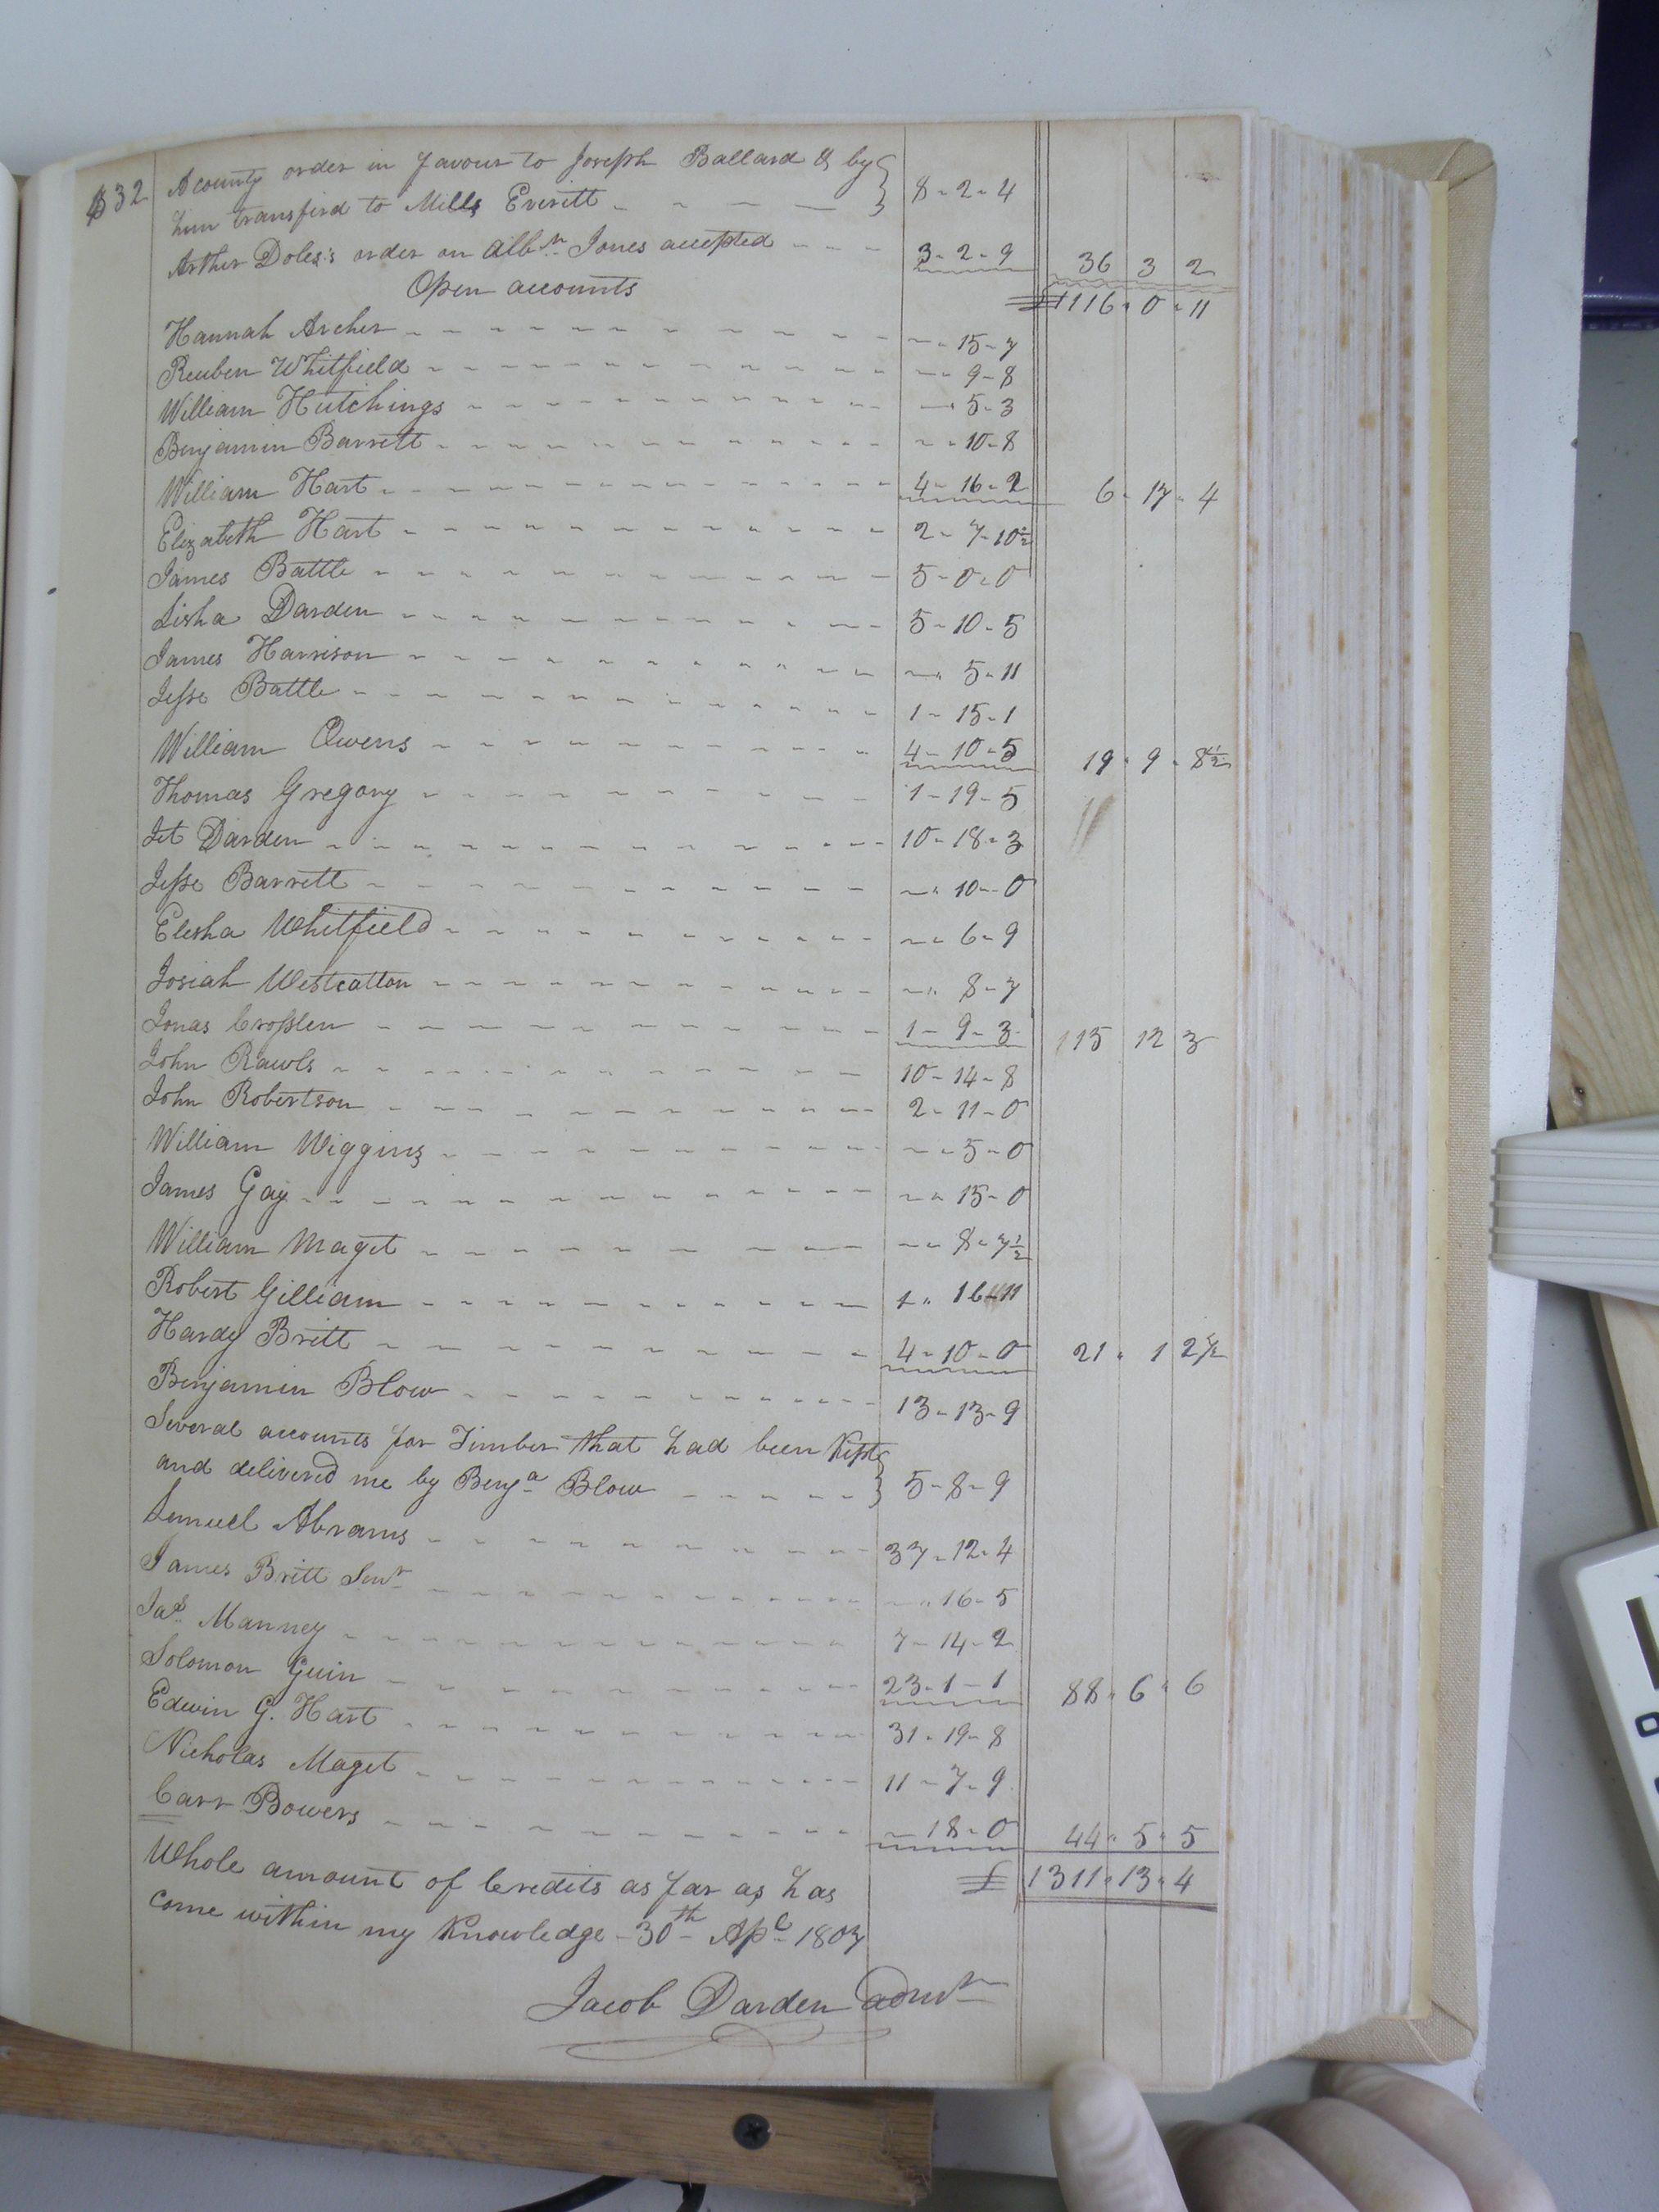 332
A county order in favour to Joseph Ballard & by }
him transfird to Mills Everitt } 8-2-4
Arther Doles's order on Albn. Jones accepted 3-2-9 36 3 2
Open accounts £1116.0.11
Hannah Archer 15-7
Reuben Whitfield 9-8
William Hutchings 5-3
Benjamin Barrett 10-8
William Hart 4-16-2 6.17.4
Elizabeth Hart 2-7-10½
James Battle 5-0-0
Lisha Darden 5-10-5
James Harrison 5-11
Jesse Battle 1-15-1
William Owens 4-10-5 19.9.8½
Thomas Gregory 1-19-5
Jet Darden 10-18-3
Jesse Barrett 10-0
Elesha Whitfield 6-9
Josiah Westcatton 8-7
Jonas Crosslen 1-9-3 15 12 3
John Rawls 10-14-8
John Robertson 2-11-0
William Wiggins 5-0
James Gay 15-0
William Maget 8-7½
Robert Gilliam 1"16-11
Hardy Britt 4-10-0 21.1 2½
Benjamin Blow 13-13-9
Several accounts for Timber that had been Kept }
and delivered me by Benja. Blow } 5-8-9
Lemuel Abrams 37-12-4
James Britt Senr 16-5
Jas. Manney 7-14-2
Solomon Guin 23-1-1 88.6.6
Edwin G. Hart 31-19-8
Nicholas Maget 11-7-9
Carr Bowers 18-0 44.5.5
Whole amount of Credits as far as has £1311.13.4
come within my Knowledge - 30th Apl. 1807
Jacob Darden admr